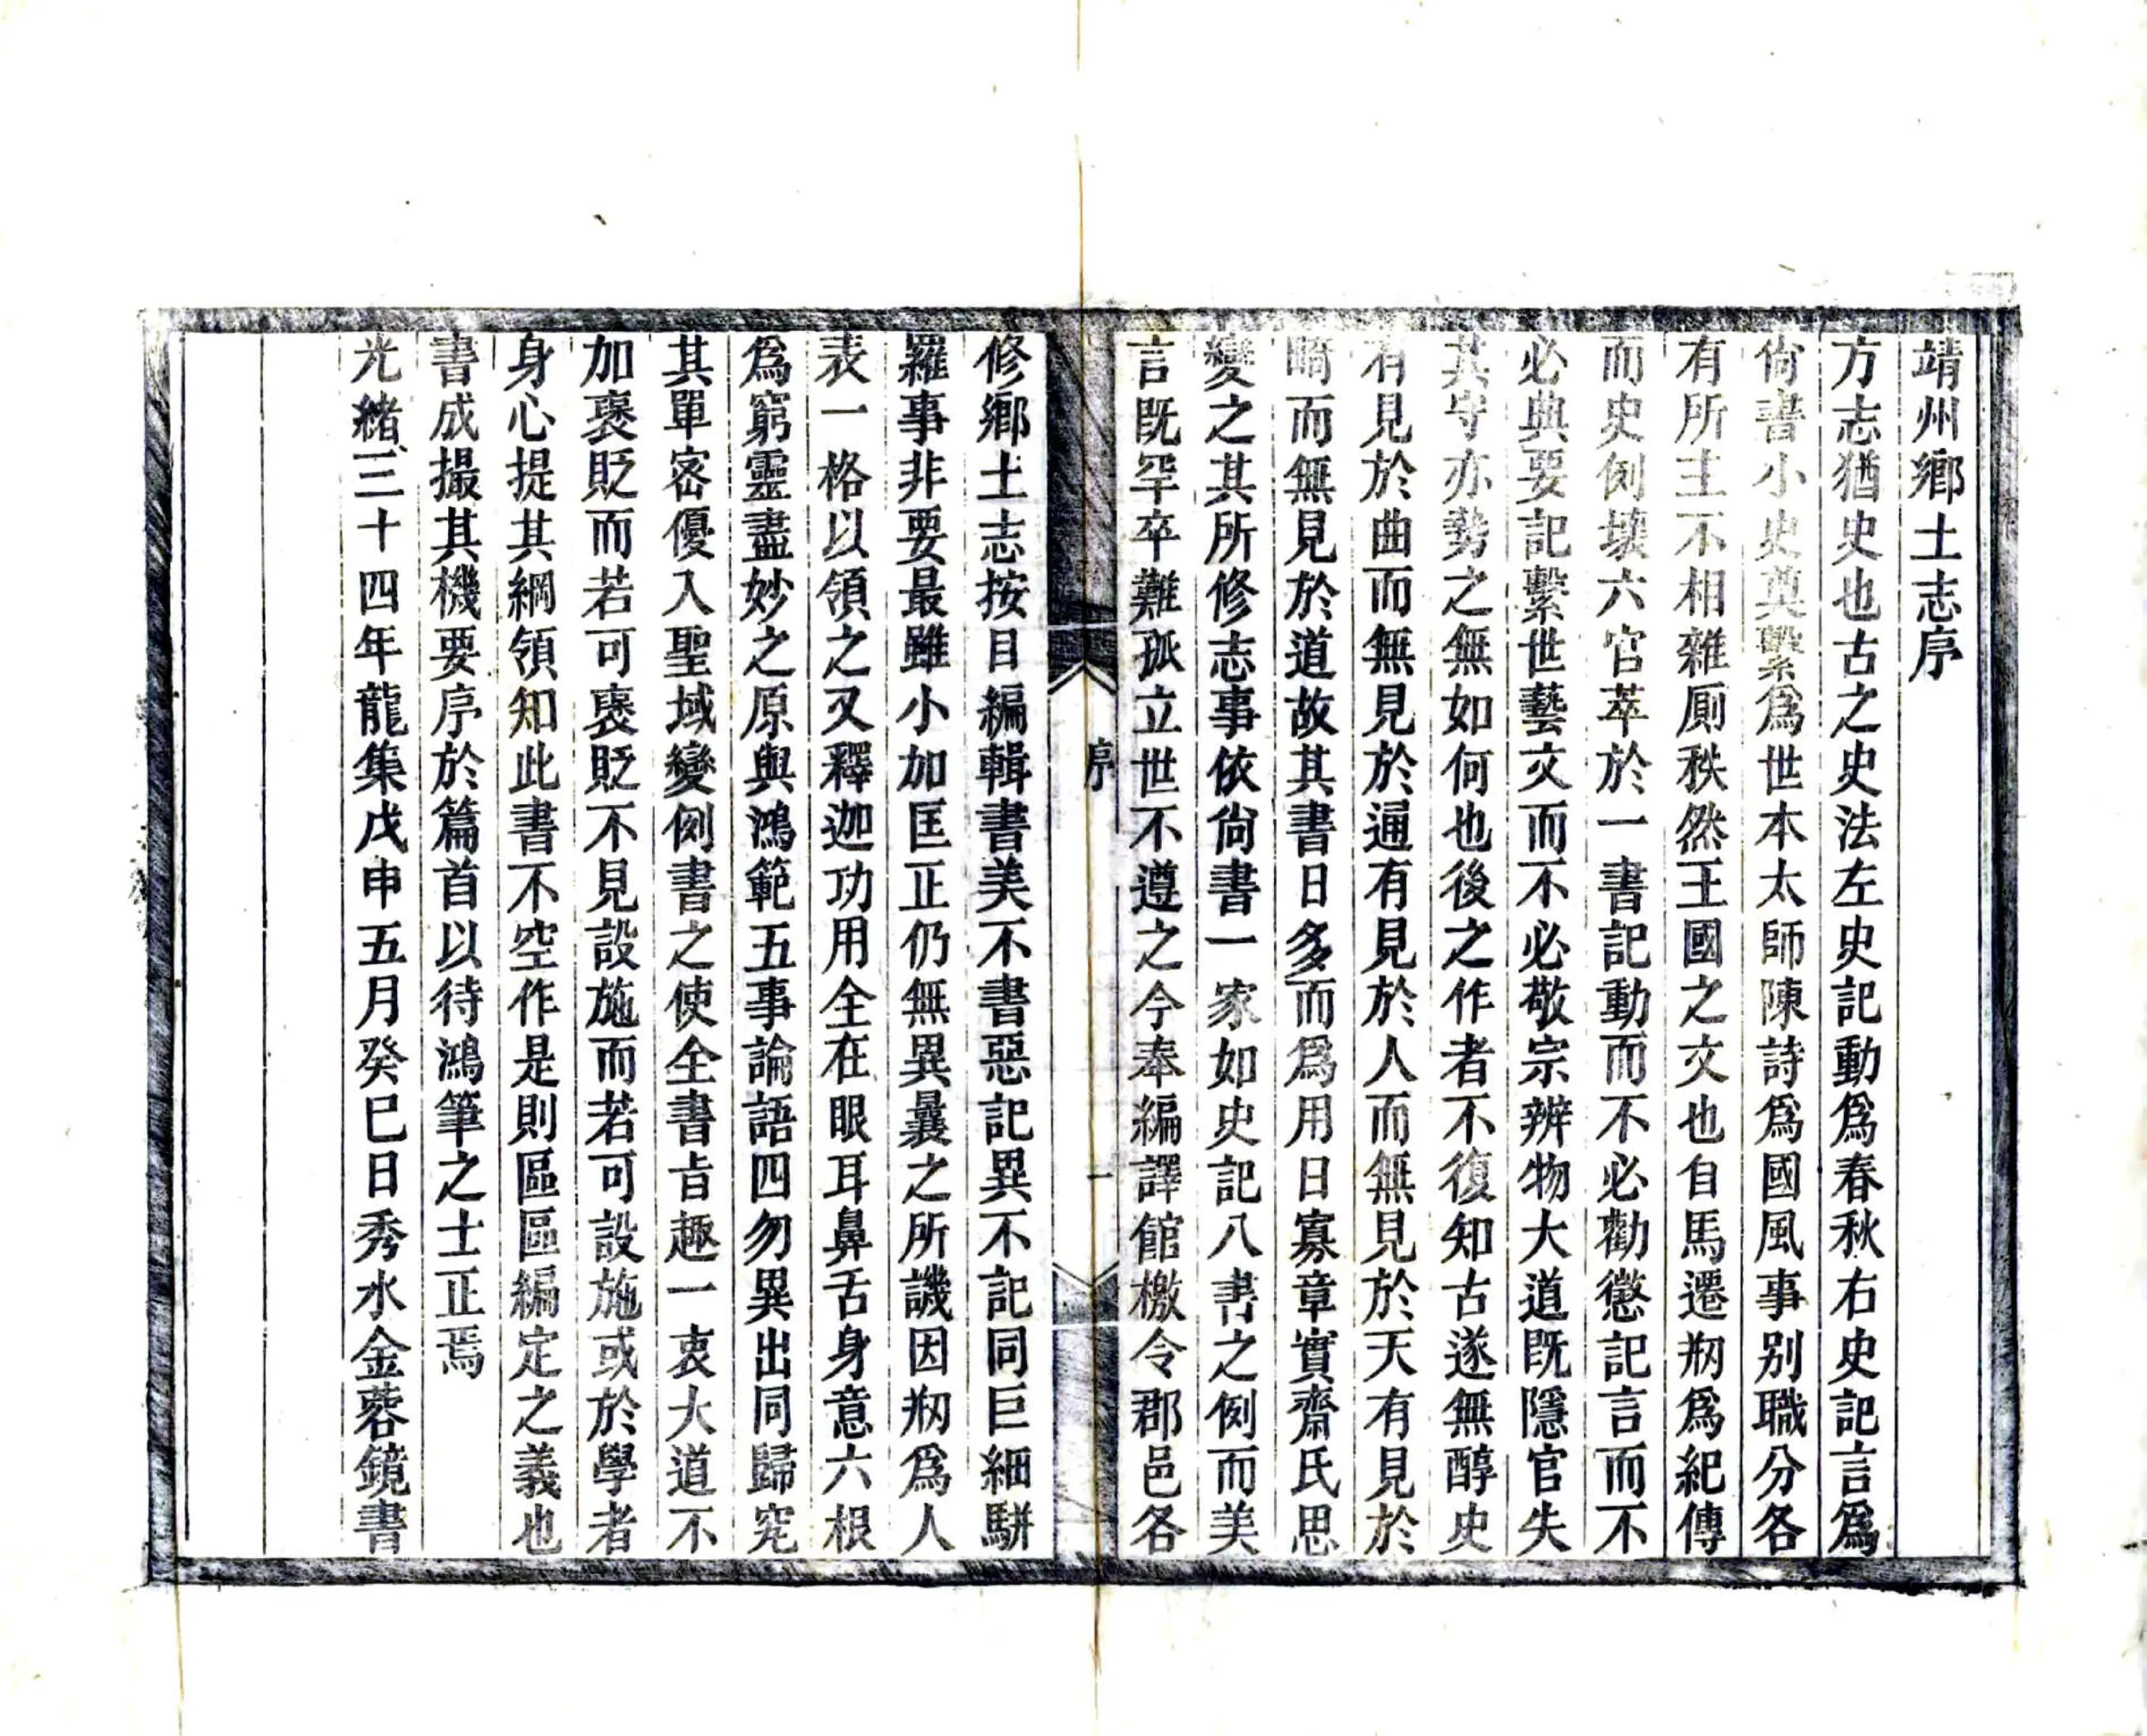 靖州鄉土志序
方志猶史也古之史法左史記動爲春秋右史記言爲
尙書小史奠繫爲世本太師陳詩爲國風事别職分各
有所主不相雜厠秩然王國之文也自馬遷刱爲紀傳
而史例壞六官萃於一書記動而不必勸懲記言而不
必典要記繫世藝文而不必敬宗辨物大道既隱官失
其守亦勢之無如何也後之作者不復知古遂無醇史
有見於曲而無見於通有見於人而無見於天有見於
畸而無見於道故其書日多而爲用日寡章實齋氏思
變之其所修志事依尙書一家如史記八書之例而美
言既罕卒難孤立世不遵之今奉編譯館檄令郡邑各
序
一
修鄉土志按目編輯書美不書惡記異不記同巨細駢
羅事非要最雖小加匡正仍無異曩之所譏因刱爲人
表一格以領之又釋迦功用全在眼耳鼻舌身意六根
爲窮靈盡妙之原與鴻範五事論語四勿異出同歸究
其單宻優入聖域變例書之使全書㫖趣一衷大道不
加褒貶而若可褒貶不見設施而若可設施或於學者
身心提其綱領知此書不空作是則區區編定之義也
書成撮其機要序於篇首以待鴻筆之士正焉
光緒三十四年龍集戊申五月癸巳日秀水金蓉鏡書